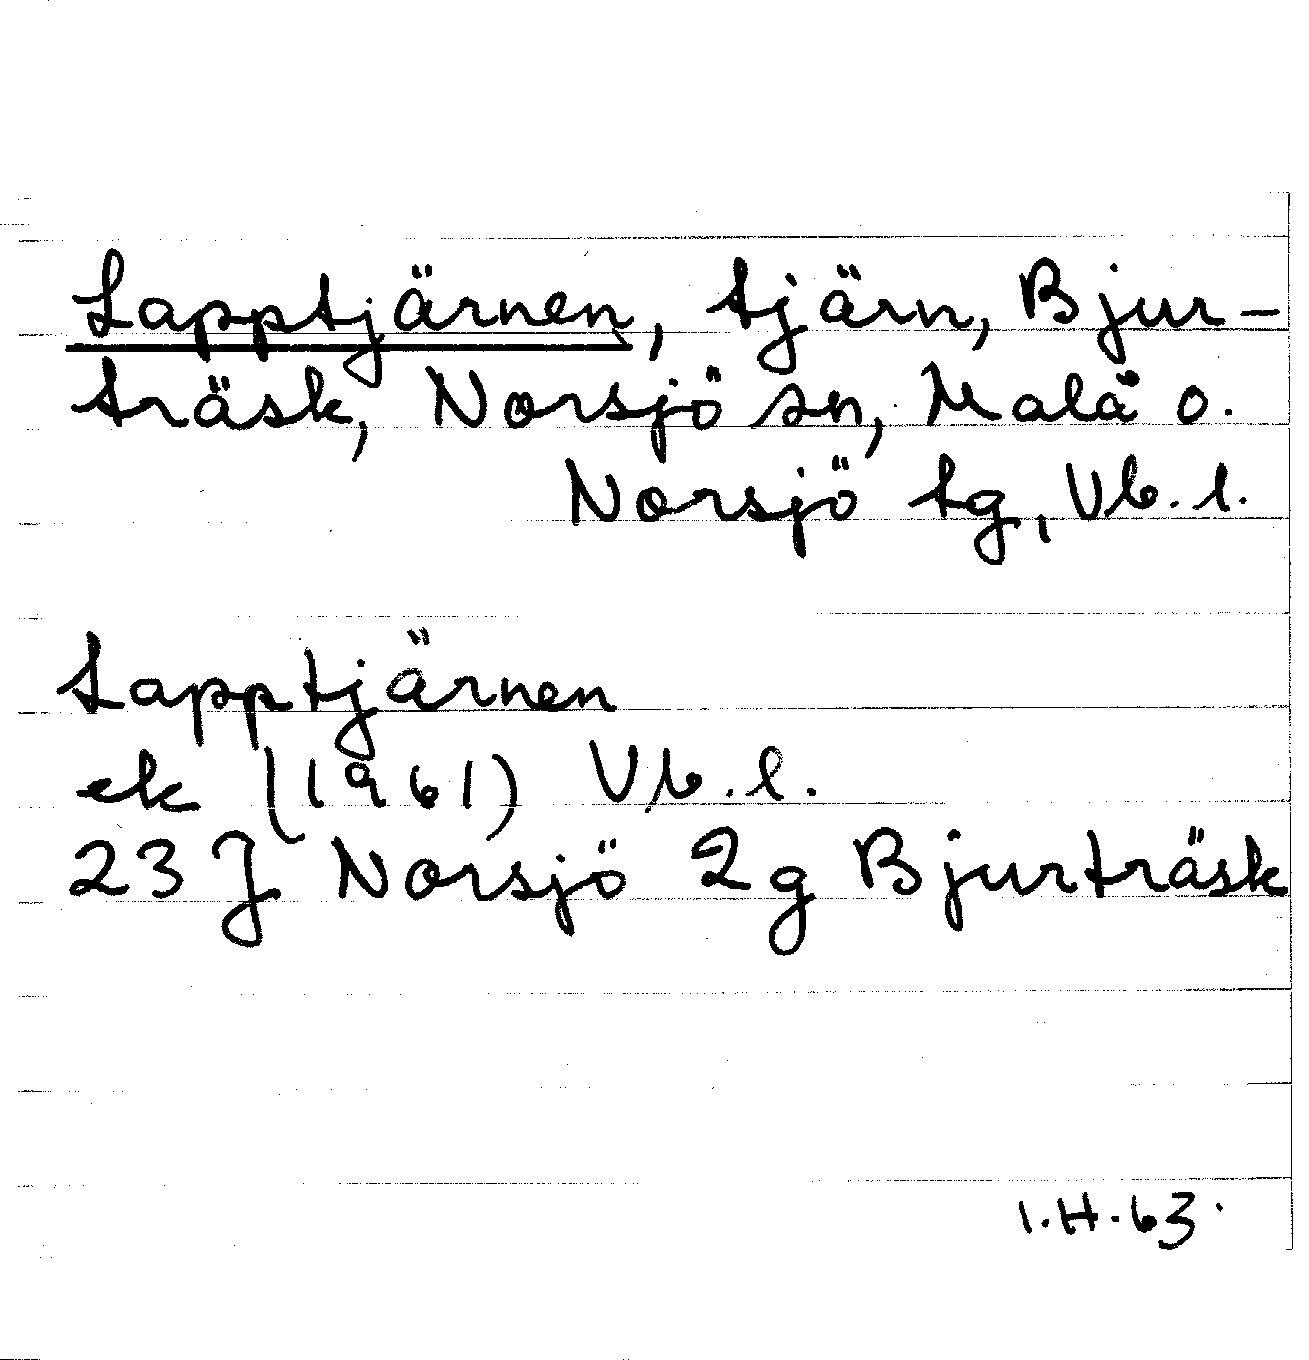 Lapptjärnen, tjärn, Bjur-
träsk, Norsjö sn, Malå o.
Norsjö tg, Vb. l.
Lapptjärnen
ek (1961) Vb. l.
23 J Norsjö 2g Bjurträsk
I.H.63.